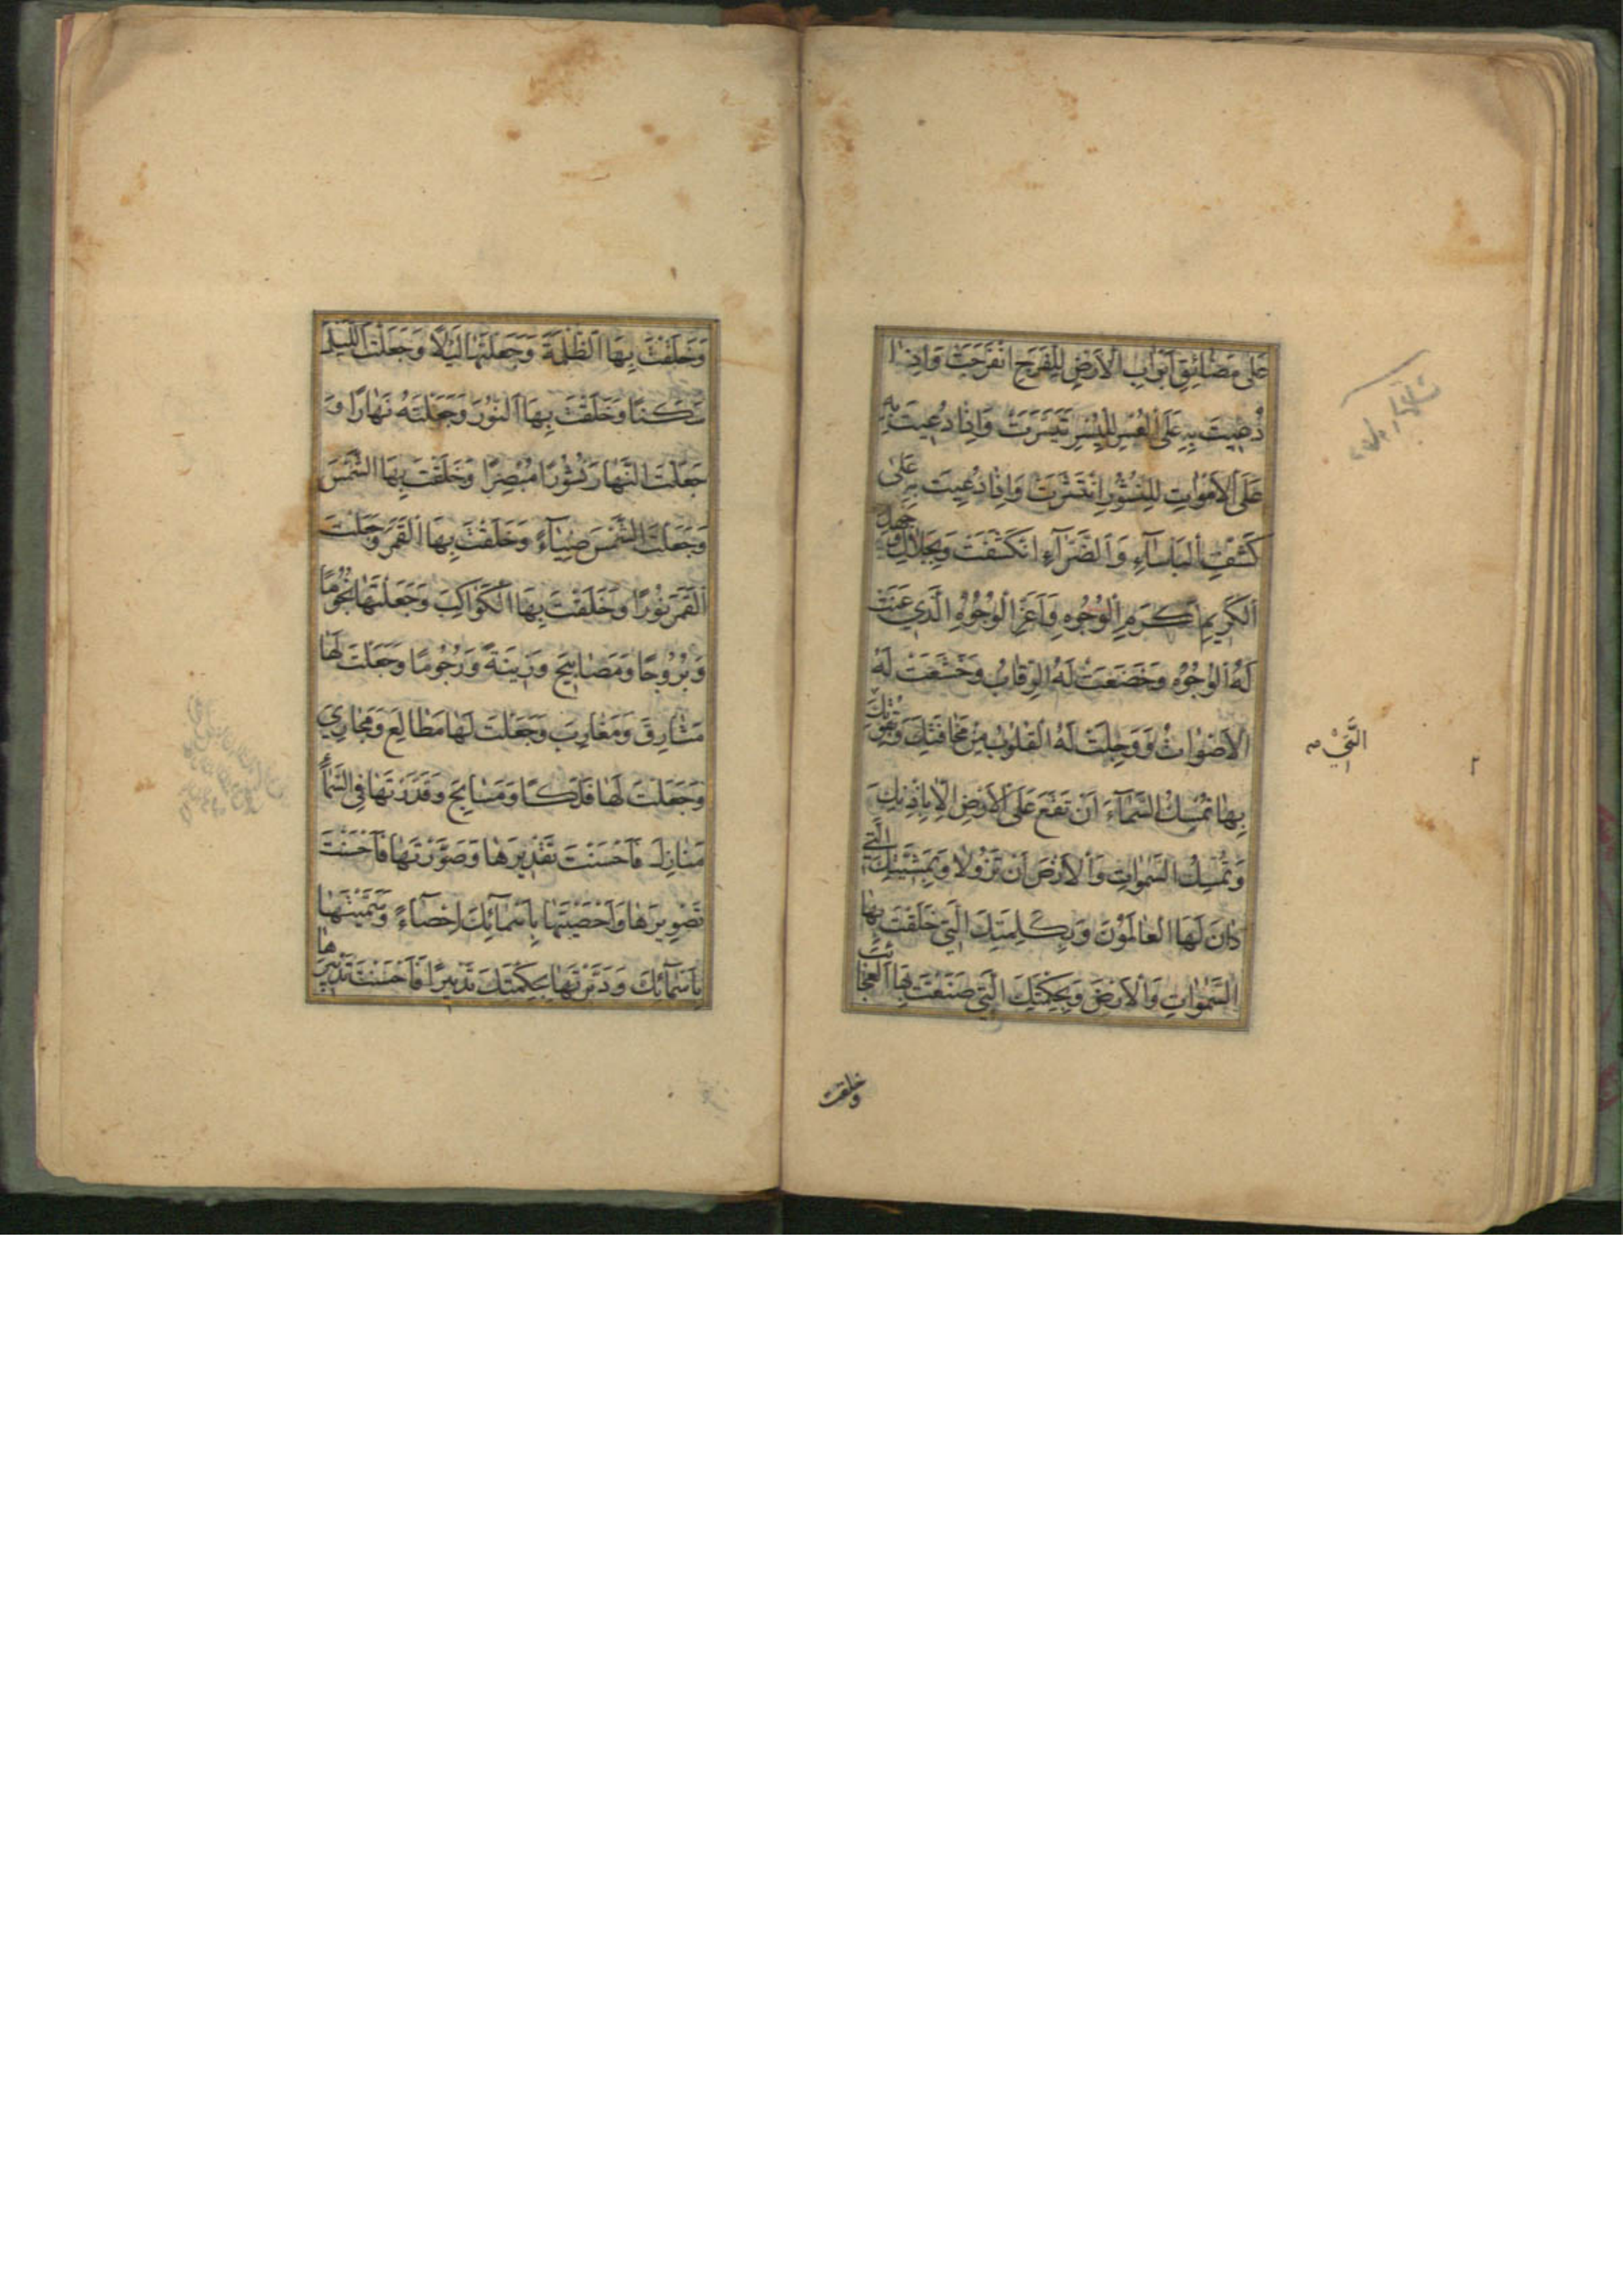 عَلىٰ مَضٰائِقِ اَبْوٰابِ الْاَرْضِ لِلْفَرَجِ انْفَرَجَتْ وَاِذٰا
دُعِيتَ بِهِ عَلَى الْعُسْرِ لِلْيُسْرِ تَيَسَّرَتْ وَاِذٰا دُعِيتَ بِهِ
عَلَى الْاَمْوٰاتِ لِلنُّشُورِ انْتَشَرَتْ وَاِذٰا دُعِيتَ بِهِ عَلىٰ
كَشْفِ الْبَاْسٰآءِ وَالضَّرّٰآءِ انْكَشَفَتْ وَبِجَلٰالِ وَجْهِكَ
الْكَرِيمِ اَكْرَمِ الْوُجُوهِ وَاَعَزِّ الْوُجُوهِ الَّذِي عَنَتْ
لَهُ الْوُجُوهُ وَخَضَعَتْ لَهُ الرِّقٰابُ وَخَشَعَتْ لَهُ
الْاَصْوٰاتُ وَوَجِلَتْ لَهُ الْقُلُوبُ مِنْ مَخٰافَتِكَ وَبِقُوَّتِكَ
الَّتِي
بِهٰا تُمْسِكُ السَّمٰآءَ اَنْ تَقَعَ عَلَى الْاَرْضِ اِلّٰا بِاِذْنِكَ
وَتُمْسِكُ السَّمٰوٰاتِ وَالْاَرْضَ اَنْ تَزُولٰا وَبِمَشِيَّتِكَ الَّتِي
دٰانَ لَهَا الْعٰالَمُونَ وَبِكَلِمَتِكَ الَّتِي خَلَقْتَ بِهَا
السَّمٰوٰاتِ وَالْاَرْضَ وَبِحِكْمَتِكَ الَّتِي صَنَعْتَ بِهَا الْعَجٰائِبَ
وخلقت
وَخَلَقْتَ بِهَا الظُّلْمَةَ وَجَعَلْتَهٰا لَيْلًا وَجَعَلْتَ اللَّيْلَ
سَكَنًا وَخَلَقْتَ بِهَا النُّورَ وَجَعَلْتَهُ نَهٰارًا وَ
جَعَلْتَ النَّهٰارَ نُشُورًا مُبْصِرًا وَخَلَقْتَ بِهَا الشَّمْسَ
وَجَعَلْتَ الشَّمْسَ ضِيٰآءً وَخَلَقْتَ بِهَا الْقَمَرَ وَجَعَلْتَ
الْقَمَرَ نُورًا وَخَلَقْتَ بِهَا الْكَوٰاكِبَ وَجَعَلْتَهٰا نُجُومًا
وَبُرُوجًا وَمَصٰابِيحَ وَزِينَةً وَرُجُومًا وَجَعَلْتَ لَهٰا
مَشٰارِقَ وَمَغٰارِبَ وَجَعَلْتَ لَهٰا مَطٰالِعَ وَمَجٰارِيَ
وَجَعَلْتَ لَهٰا فَلَكًا وَمَسٰابِحَ وَقَدَّرْتَهٰا فِي السَّمٰآءِ
مَنٰازِلَ فَاَحْسَنْتَ تَقْدِيرَهٰا وَصَوَّرْتَهٰا فَاَحْسَنْتَ
تَصْوِيرَهٰا وَاَحْصَيْتَهٰا بِاَسْمٰآئِكَ اِحْصٰآءً وَسَمَّيْتَهٰا
بِاَسْمٰآئِكَ وَدَبَّرْتَهٰا بِحِكْمَتِكَ تَدْبِيرًا فَاَحْسَنْتَ تَدْبِيرَهٰا